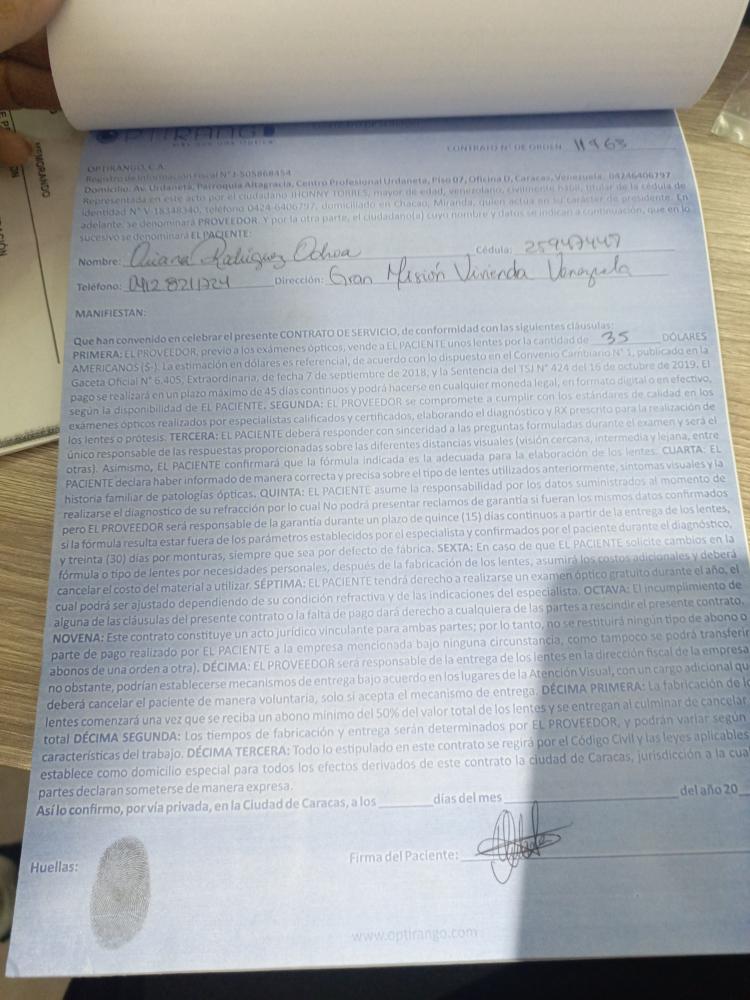 OPTIRANGO
CONTRATO N° DE ORDEN 11963
OPTIRANGO, C.A.
Registro de Información Fiscal N° J-505868454
Domicilio: Av. Urdaneta, Parroquia Altagracia, Centro Profesional Urdaneta, Piso 07, Oficina D, Caracas, Venezuela. 04246406797
Representada en este acto por el ciudadano JHONNY TORRES, mayor de edad, venezolano, civilmente hábil, titular de la cédula de
identidad N° V 18348340, teléfono 0424-6406797, domiciliado en Chacao, Miranda, quien actúa en su carácter de presidente. En
adelante, se denominará PROVEEDOR. Y por la otra parte, el ciudadano(a) cuyo nombre y datos se indican a continuación, que en lo
sucesivo se denominará EL PACIENTE:
Nombre: Oriana Rodriguez Ochoa Cédula: 25947447
Teléfono: 0412 8211724 Dirección: Gran Misión Vivienda Venezuela
MANIFIESTAN:
Que han convenido en celebrar el presente CONTRATO DE SERVICIO, de conformidad con las siguientes cláusulas:
PRIMERA: EL PROVEEDOR, previo a los exámenes ópticos, vende a EL PACIENTE unos lentes por la cantidad de 35 DÓLARES
AMERICANOS ($-). La estimación en dólares es referencial, de acuerdo con lo dispuesto en el Convenio Cambiario N° 1, publicado en la
Gaceta Oficial N° 6.405, Extraordinaria, de fecha 7 de septiembre de 2018, y la Sentencia del TSJ N° 424 del 16 de octubre de 2019. El
pago se realizará en un plazo máximo de 45 días continuos y podrá hacerse en cualquier moneda legal, en formato digital o en efectivo,
según la disponibilidad de EL PACIENTE. SEGUNDA: EL PROVEEDOR se compromete a cumplir con los estándares de calidad en los
exámenes ópticos realizados por especialistas calificados y certificados, elaborando el diagnóstico y RX prescrito para la realización de
los lentes o prótesis. TERCERA: EL PACIENTE deberá responder con sinceridad a las preguntas formuladas durante el examen y será el
único responsable de las respuestas proporcionadas sobre las diferentes distancias visuales (visión cercana, intermedia y lejana, entre
otras). Asimismo, EL PACIENTE confirmará que la fórmula indicada es la adecuada para la elaboración de los lentes. CUARTA: EL
PACIENTE declara haber informado de manera correcta y precisa sobre el tipo de lentes utilizados anteriormente, síntomas visuales y la
historia familiar de patologías ópticas. QUINTA: EL PACIENTE asume la responsabilidad por los datos suministrados al momento de
realizarse el diagnostico de su refracción por lo cual No podrá presentar reclamos de garantía si fueran los mismos datos confirmados
pero EL PROVEEDOR será responsable de la garantía durante un plazo de quince (15) días continuos a partir de la entrega de los lentes,
si la fórmula resulta estar fuera de los parámetros establecidos por el especialista y confirmados por el paciente durante el diagnóstico,
y treinta (30) días por monturas, siempre que sea por defecto de fábrica. SEXTA: En caso de que EL PACIENTE solicite cambios en la
fórmula o tipo de lentes por necesidades personales, después de la fabricación de los lentes, asumirá los costos adicionales y deberá
cancelar el costo del material a utilizar. SÉPTIMA: EL PACIENTE tendrá derecho a realizarse un examen óptico gratuito durante el año, el
cual podrá ser ajustado dependiendo de su condición refractiva y de las indicaciones del especialista. OCTAVA: El incumplimiento de
alguna de las cláusulas del presente contrato o la falta de pago dará derecho a cualquiera de las partes a rescindir el presente contrato.
NOVENA: Este contrato constituye un acto jurídico vinculante para ambas partes; por lo tanto, no se restituirá ningún tipo de abono o
parte de pago realizado por EL PACIENTE a la empresa mencionada bajo ninguna circunstancia, como tampoco se podrá transferir
abonos de una orden a otra). DÉCIMA: EL PROVEEDOR será responsable de la entrega de los lentes en la dirección fiscal de la empresa
no obstante, podrían establecerse mecanismos de entrega bajo acuerdo en los lugares de la Atención Visual, con un cargo adicional qu
deberá cancelar el paciente de manera voluntaria, solo si acepta el mecanismo de entrega. DÉCIMA PRIMERA: La fabricación de lo
lentes comenzará una vez que se reciba un abono mínimo del 50% del valor total de los lentes y se entregan al culminar de cancelar
total DÉCIMA SEGUNDA: Los tiempos de fabricación y entrega serán determinados por EL PROVEEDOR, y podrán variar según
características del trabajo. DÉCIMA TERCERA: Todo lo estipulado en este contrato se regirá por el Código Civil y las leyes aplicables
establece como domicilio especial para todos los efectos derivados de este contrato la ciudad de Caracas, jurisdicción a la cua
partes declaran someterse de manera expresa.
Así lo confirmo, por vía privada, en la Ciudad de Caracas, a los ________ días del mes ________ del año 20__
Huellas:
Firma del Paciente:
www.optirango.com